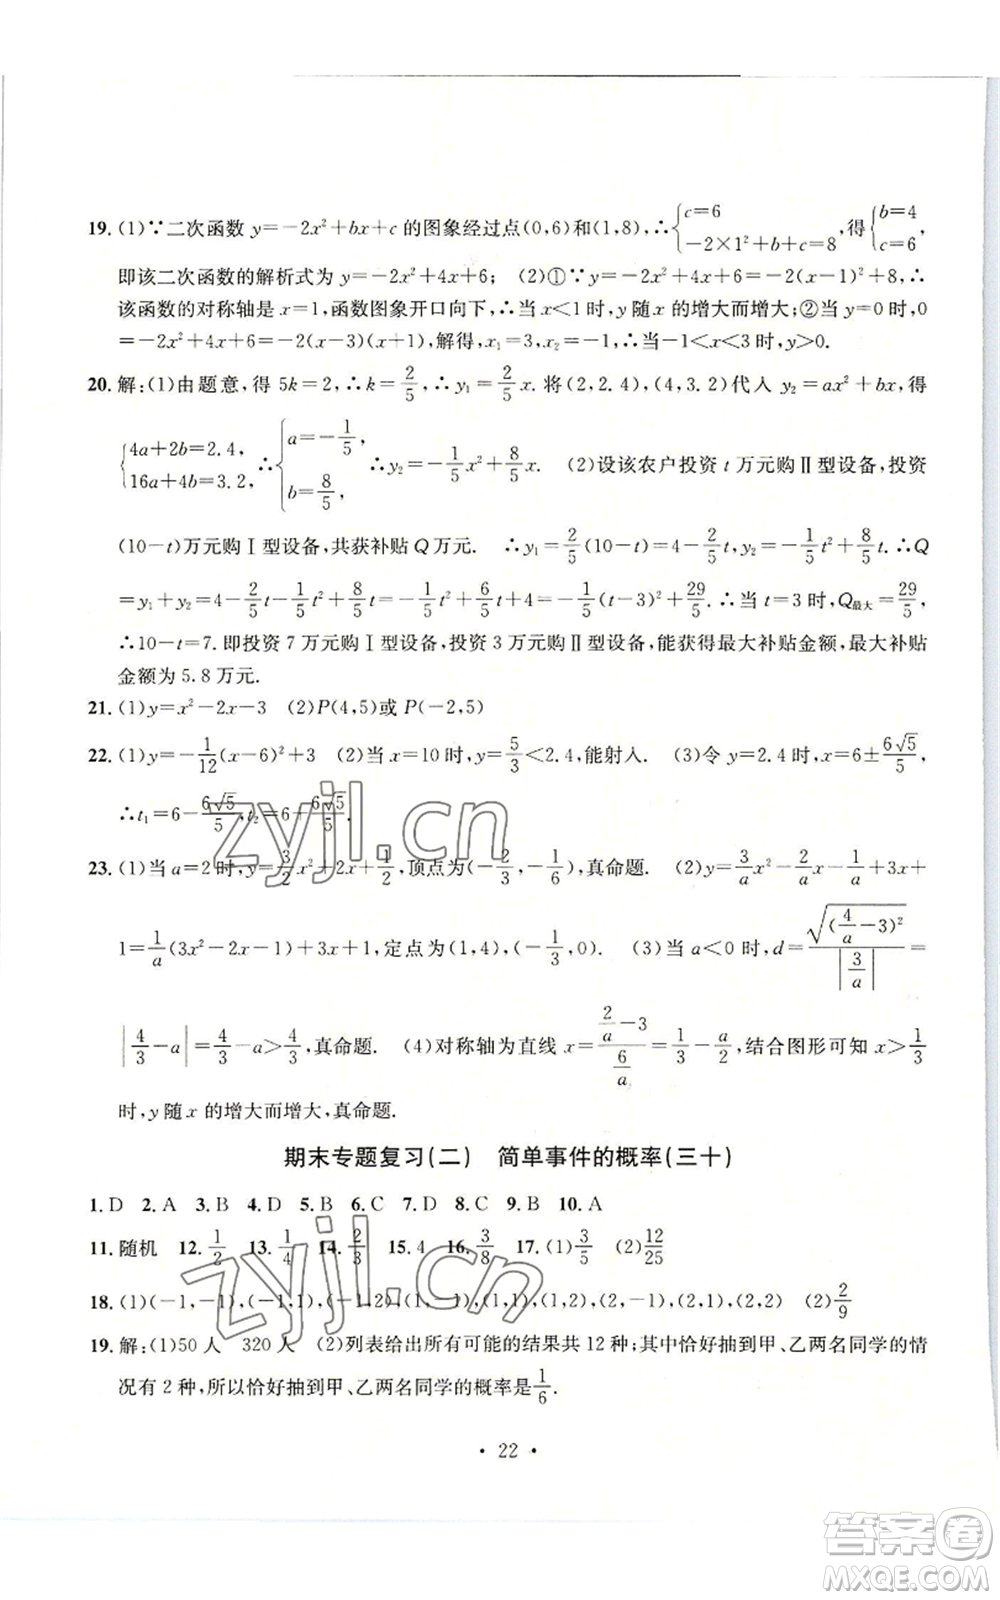 19. (1)∵二次函数 y=-2x²+bx+c 的图象经过点(0,6)和(1,8),∴{c=6 -2×1²+b+c=8,得{b=4 c=6,
即该二次函数的解析式为 y=-2x²+4x+6; (2)①∵y=-2x²+4x+6=-2(x-1)²+8,∴
该函数的对称轴是 x=1,函数图象开口向下,∴当 x<1时,y随 x 的增大而增大;②当 y=0 时,0
=-2x²+4x+6=-2(x-3)(x+1),解得,x₁=3,x₂=-1,∴当-1<x<3 时,y>0.
20. 解:(1)由题意,得 5k=2,∴k=2/5,∴y₁=2/5x. 将(2,2.4),(4,3.2)代人 y₂=ax²+bx,得
{4a+2b=2.4, 16a+4b=3.2, ∴{a=-1/5, b=8/5, ∴y₂=-1/5x²+8/5x. (2)设该农户投资 t 万元购Ⅱ型设备,投资
(10-t)万元购Ⅰ型设备,共获补贴 Q 万元. ∴y₁=2/5(10-t)=4-2/5t,y₂=-1/5t²+8/5t.∴Q
=y₁+y₂=4-2/5t-1/5t²+8/5t=-1/5t²+6/5t+4=-1/5(t-3)²+29/5.∴当 t=3 时,Q最大=29/5,
∴10-t=7. 即投资 7 万元购Ⅰ型设备,投资 3 万元购Ⅱ型设备,能获得最大补贴金额,最大补贴
金额为 5.8 万元.
21. (1)y=x²-2x-3 (2)P(4,5)或 P(-2,5)
22. (1)y=-1/12(x-6)²+3 (2)当 x=10 时,y=5/3<2.4,能射人. (3)令 y=2.4 时,x=6±6√5/5,
∴t₁=6-6√5/5,t₂=6+6√5/5.
23. (1)当 a=2 时,y=3/2x²+2x+1/2,顶点为(-2/3,-1/6),真命题. (2)y=3/ax²-2/ax-1/a+3x+
1=1/a(3x²-2x-1)+3x+1,定点为(1,4),(-1/3,0). (3)当 a<0 时,d=√((4/a-3)²)/|3/a|=
|4/3-a|=4/3-a>4/3,真命题. (4)对称轴为直线 x=(2/a-3)/(6/a)=1/3-a/2,结合图形可知 x>1/3
时,y 随 x 的增大而增大,真命题.
期末专题复习(二) 简单事件的概率(三十)
1. D 2. A 3. B 4. D 5. B 6. C 7. D 8. C 9. B 10. A
11. 随机 12. 1/2 13. 1/4 14. 2/3 15. 4 16. 3/8 17. (1)3/5 (2)12/25
18. (1)(-1,-1),(-1,1),(-1,2),(1,-1),(1,1),(1,2),(2,-1),(2,1),(2,2) (2)2/9
19. 解:(1)50 人 320 人 (2)列表给出所有可能的结果共 12 种;其中恰好抽到甲、乙两名同学的情
况有 2 种,所以恰好抽到甲、乙两名同学的概率是1/6.
• 22 •
zyjl.cn
zyjl.cn
答案圈
MXQE.COM